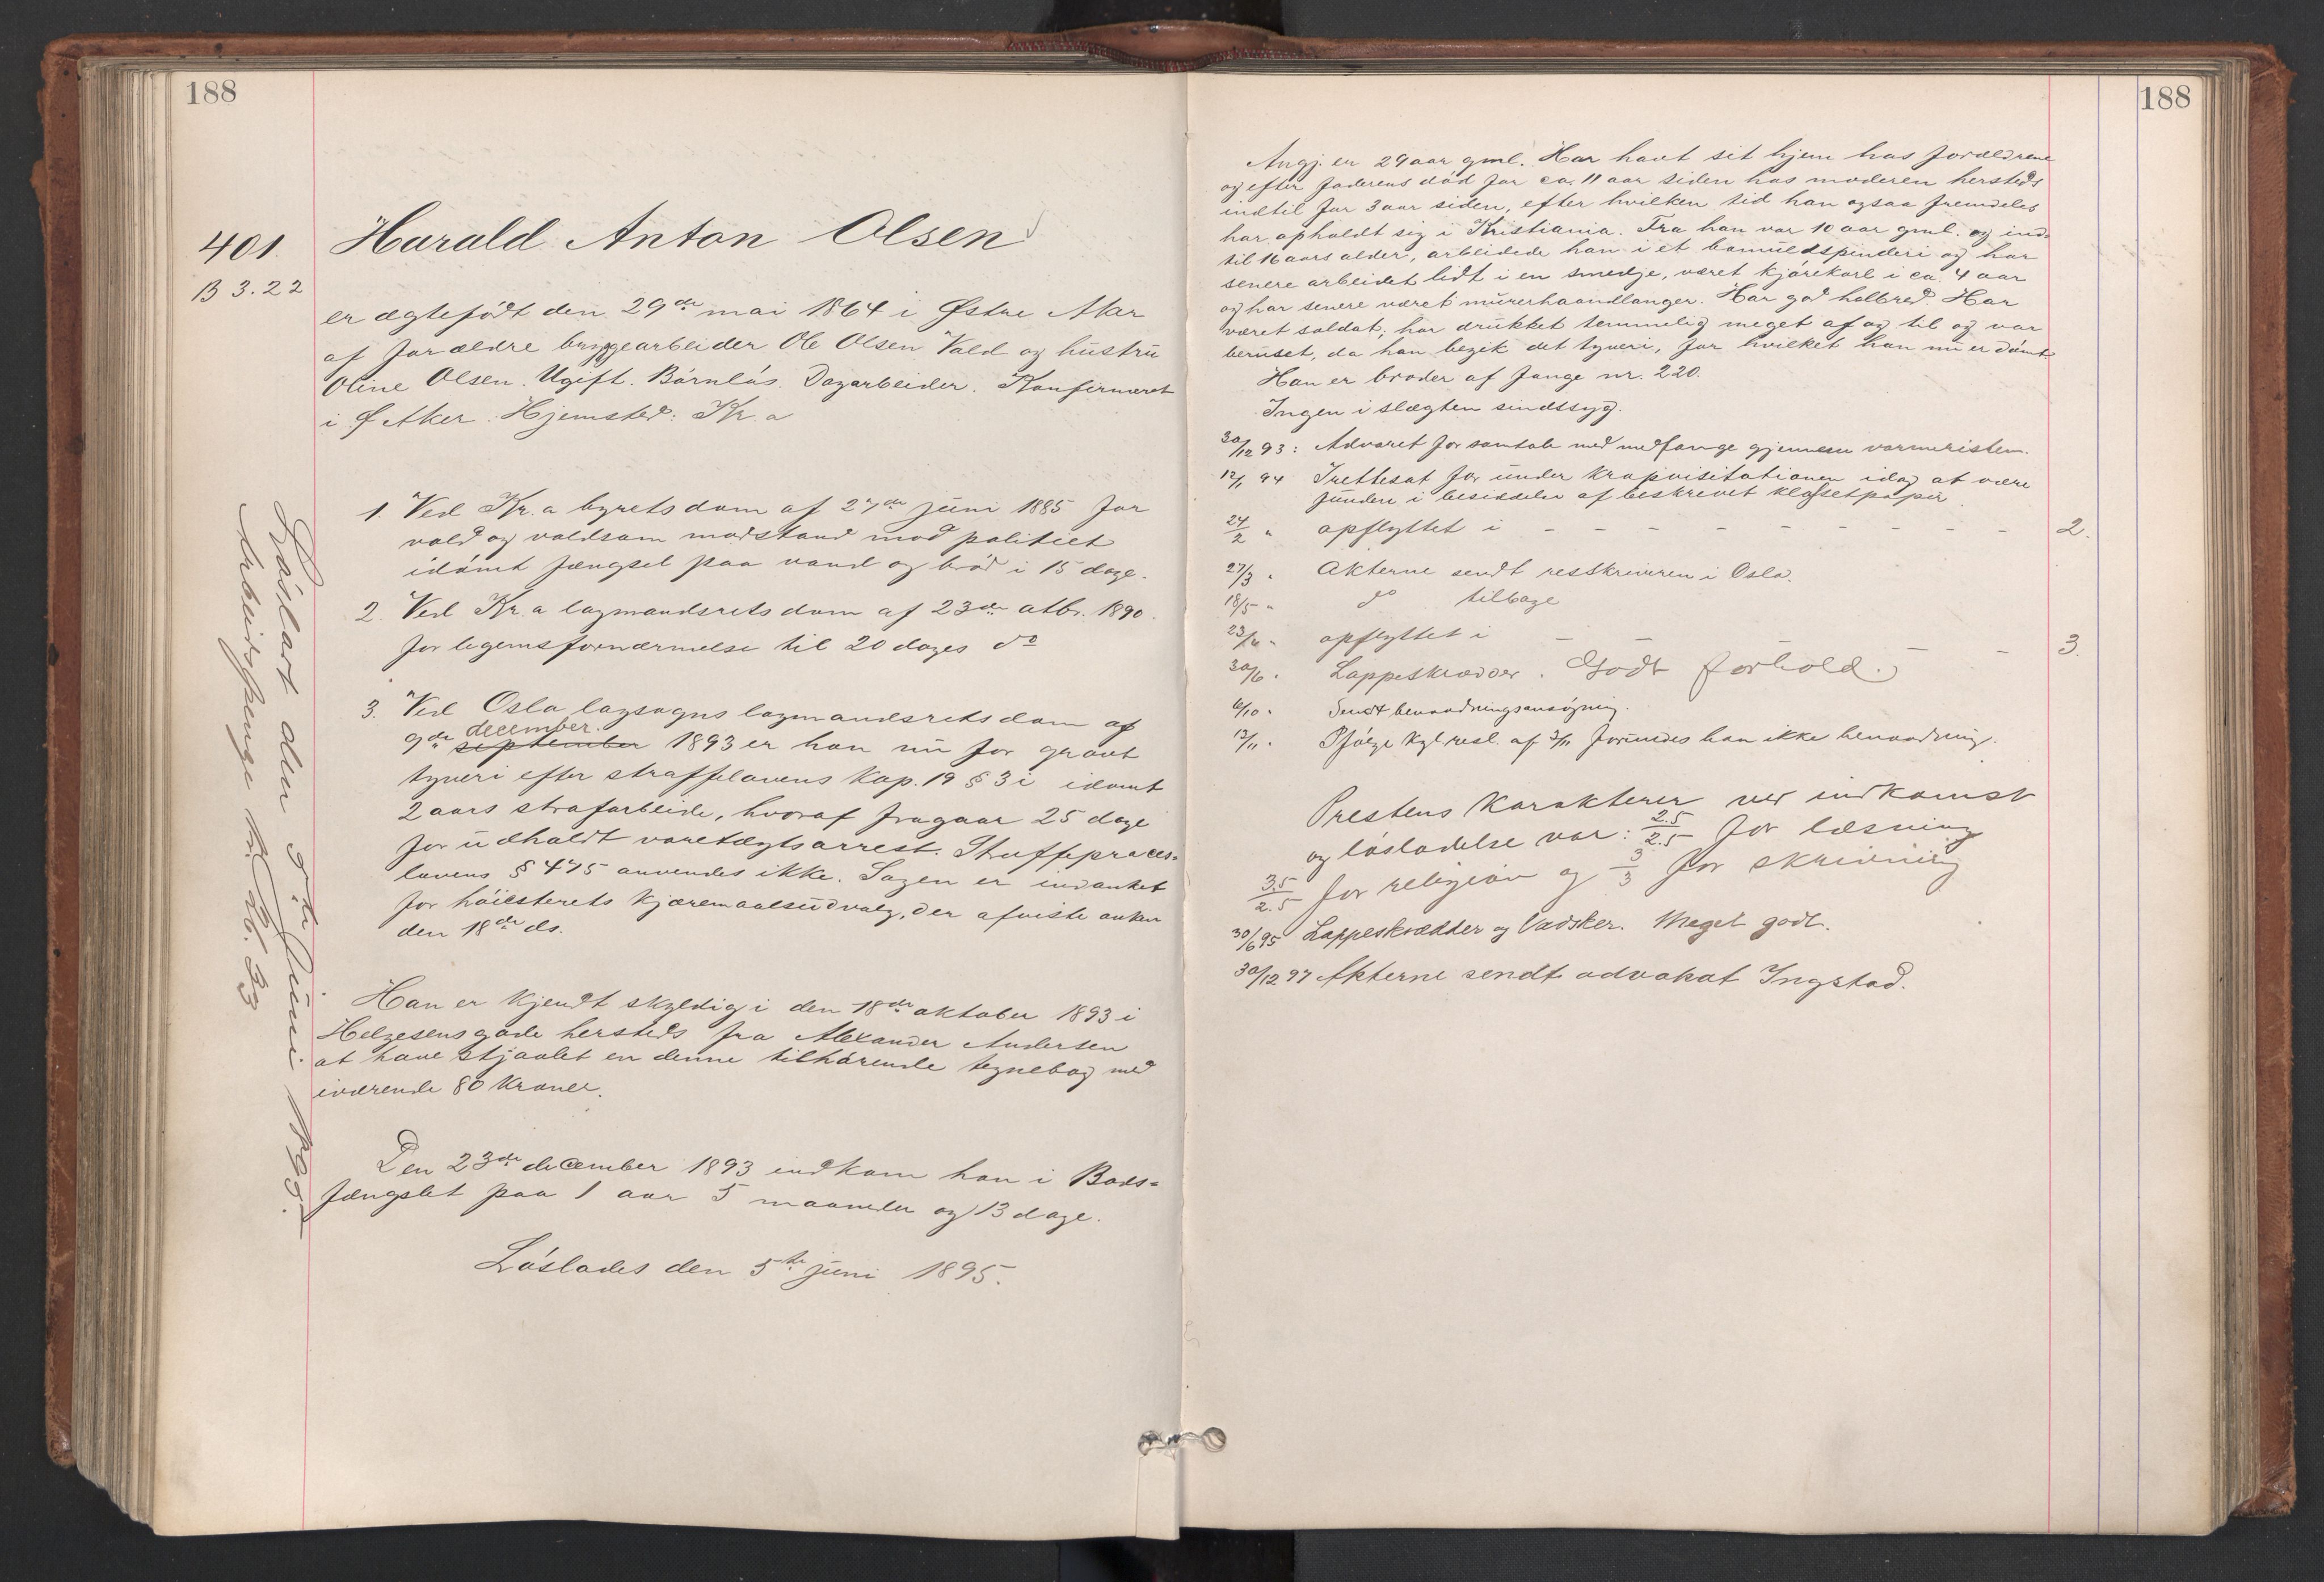 188
401.
B 3.22
Harald Anton Olsen
er ægtefødt den 29de mai 1864 i Østre Aker
af forældre bryggearbeider Ole Olsen Vold og hustru
Oline Olsen. Ugift. Børnløs. Dagarbeider. Konfirmeret
i Ø. Aker. Hjemsted: Kr.a
1. Ved Kr.a byrets dom af 27de juni 1885 for
vold og voldsom modstand mod politiet
idømt fængsel paa vand og brød i 15 dage.
2. Ved Kr.a lagmandsrets dom af 23de oktbr. 1890.
for legemsfornærmelse til 20 dages do
3. Ved Oslo lagsogns lagmandsrets dom af
december.
9de september 1893 er han nu for grovt
tyveri efter straffelovens kap. 19 § 3 i idømt
2 aars strafarbeide, hvoraf fragaar 25 dage
for udholdt varetægtsarrest. Straffeproces-
lovens § 475 anvendes ikke. Sagen er indanket
for høiesterets kjæremaalsudvalg, der afviste anken
den 18de ds.
Han er kjendt skyldig i den 18de oktober 1893 i
Helgesensgade hersteds fra Alexander Andersen
at have stjaalet en denne tilhørende tegnebog med
iværende 80 kroner.
Den 23de december 1893 indkom han i Bods-
fængslet paa 1 aar 5 maaneder og 13 dage.
Løslades den 5te juni 1895.
Løsladt den 5te Juni 1895.
Arbeidspenge Kr. 26.33
188
Angj. er 29 aar gml. Har havt sit hjem hos forældrene
og efter faderens død for ca. 11 aar siden hos moderen hersteds
indtil for 3 aar siden, efter hvilken tid han ogsaa fremdeles
har opholdt sig i Kristiania. Fra han var 10 aar gml. og ind-
til 16 aars alder, arbeidede han i et bomuldspinderi og har
senere arbeidet lidt i en smedje, været kjørekarl i ca. 4 aar
og har senere været murerhaandlanger. Har god helbred. Har
været soldat; har drukket temmelig meget af og til og var
beruset, da han begik det tyveri, for hvilket han nu er dømt.
Han er broder af fange nr. 220.
Ingen i slægten sindssyg.
30/12 93: Advaret for samtale med medfange gjennem varmeristen.
12/1 94 Irettesat for under kropvisitationen idag at være
funden i besiddelse af beskrevet klosetpapir.
24/2 " opflyttet i - - - - - - - - - 2.
27/3 " Akterne sendt resskriveren i Oslo.
18/5 " do tilbage
23/6 " opflyttet i - - - - - 3.
30/6 " Lappeskrædder. Godt forhold.
6/10 " Sendt benaadningsansøgning.
13/11 " Ifølge kgl. resl. af 3/11 forundes han ikke benaadning.
Prestens karakterer ved indkomst
og løsladelse var: 2.5/2.5 for læsning
3.5/2.5 for religion og 3/3 for skrivning
30/6 95 Lappeskrædder og Vadsker. Meget godt.
30/12 97 Akterne sendt advokat Ingstad.